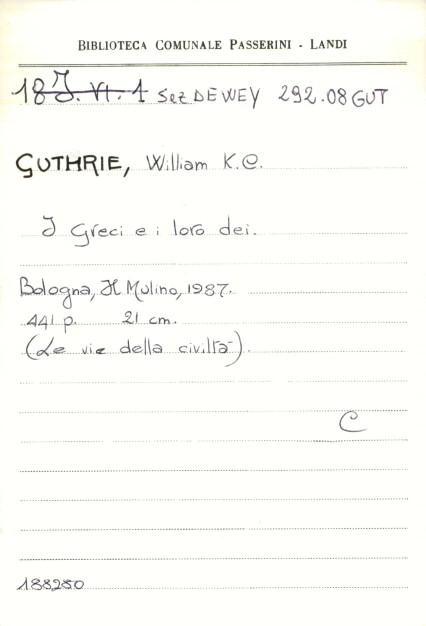 BIBLIOTECA COMUNALE PASSERINI - LANDI
18 J. VI. 1 Sez DEWEY 292.08 GUT
GUTHRIE, William K.C.
I Greci e i loro dei.
Bologna, Il Mulino, 1987.
441 p. 21 cm.
(Le vie della civiltà).
C
188280